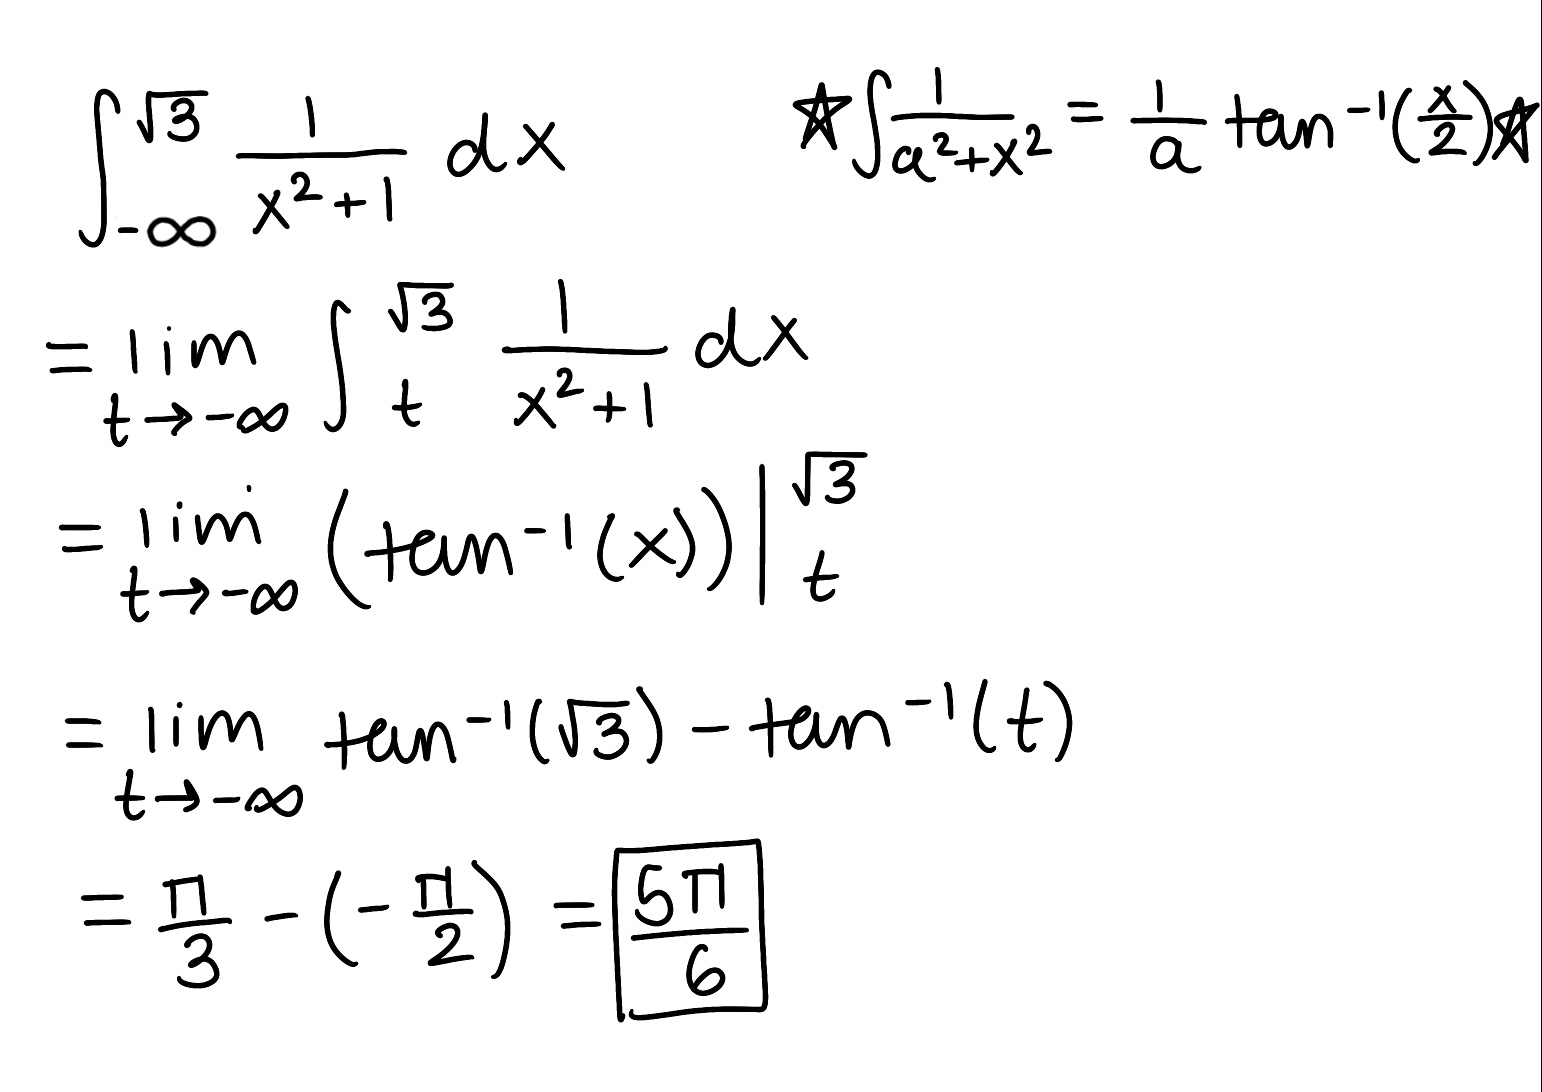 ∫_{-∞}^{√3} 1/(x²+1) dx
☆ ∫ 1/(a²+x²) = 1/a tan⁻¹(x/2) ☆
= lim_{t→-∞} ∫_{t}^{√3} 1/(x²+1) dx
= lim_{t→-∞} (tan⁻¹(x)) |_{t}^{√3}
= lim_{t→-∞} tan⁻¹(√3) - tan⁻¹(t)
= π/3 - (-π/2) = 5π/6